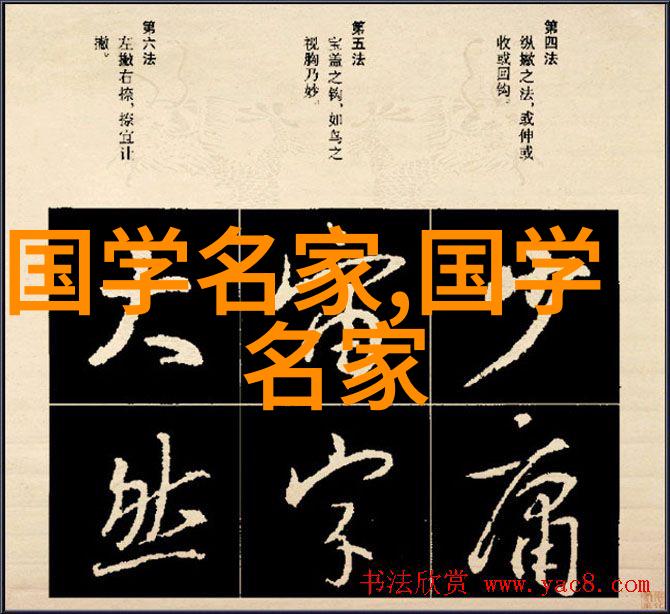 第四法
纵撇之法，或伸或
收或回钩。
第五法
宝盖之钩，如鸟之
视胸乃妙。
第六法
左撇右捺，捺宜让
撇。
国学名家,国学
名家
然字庸
书法欣赏 www.yac8.com